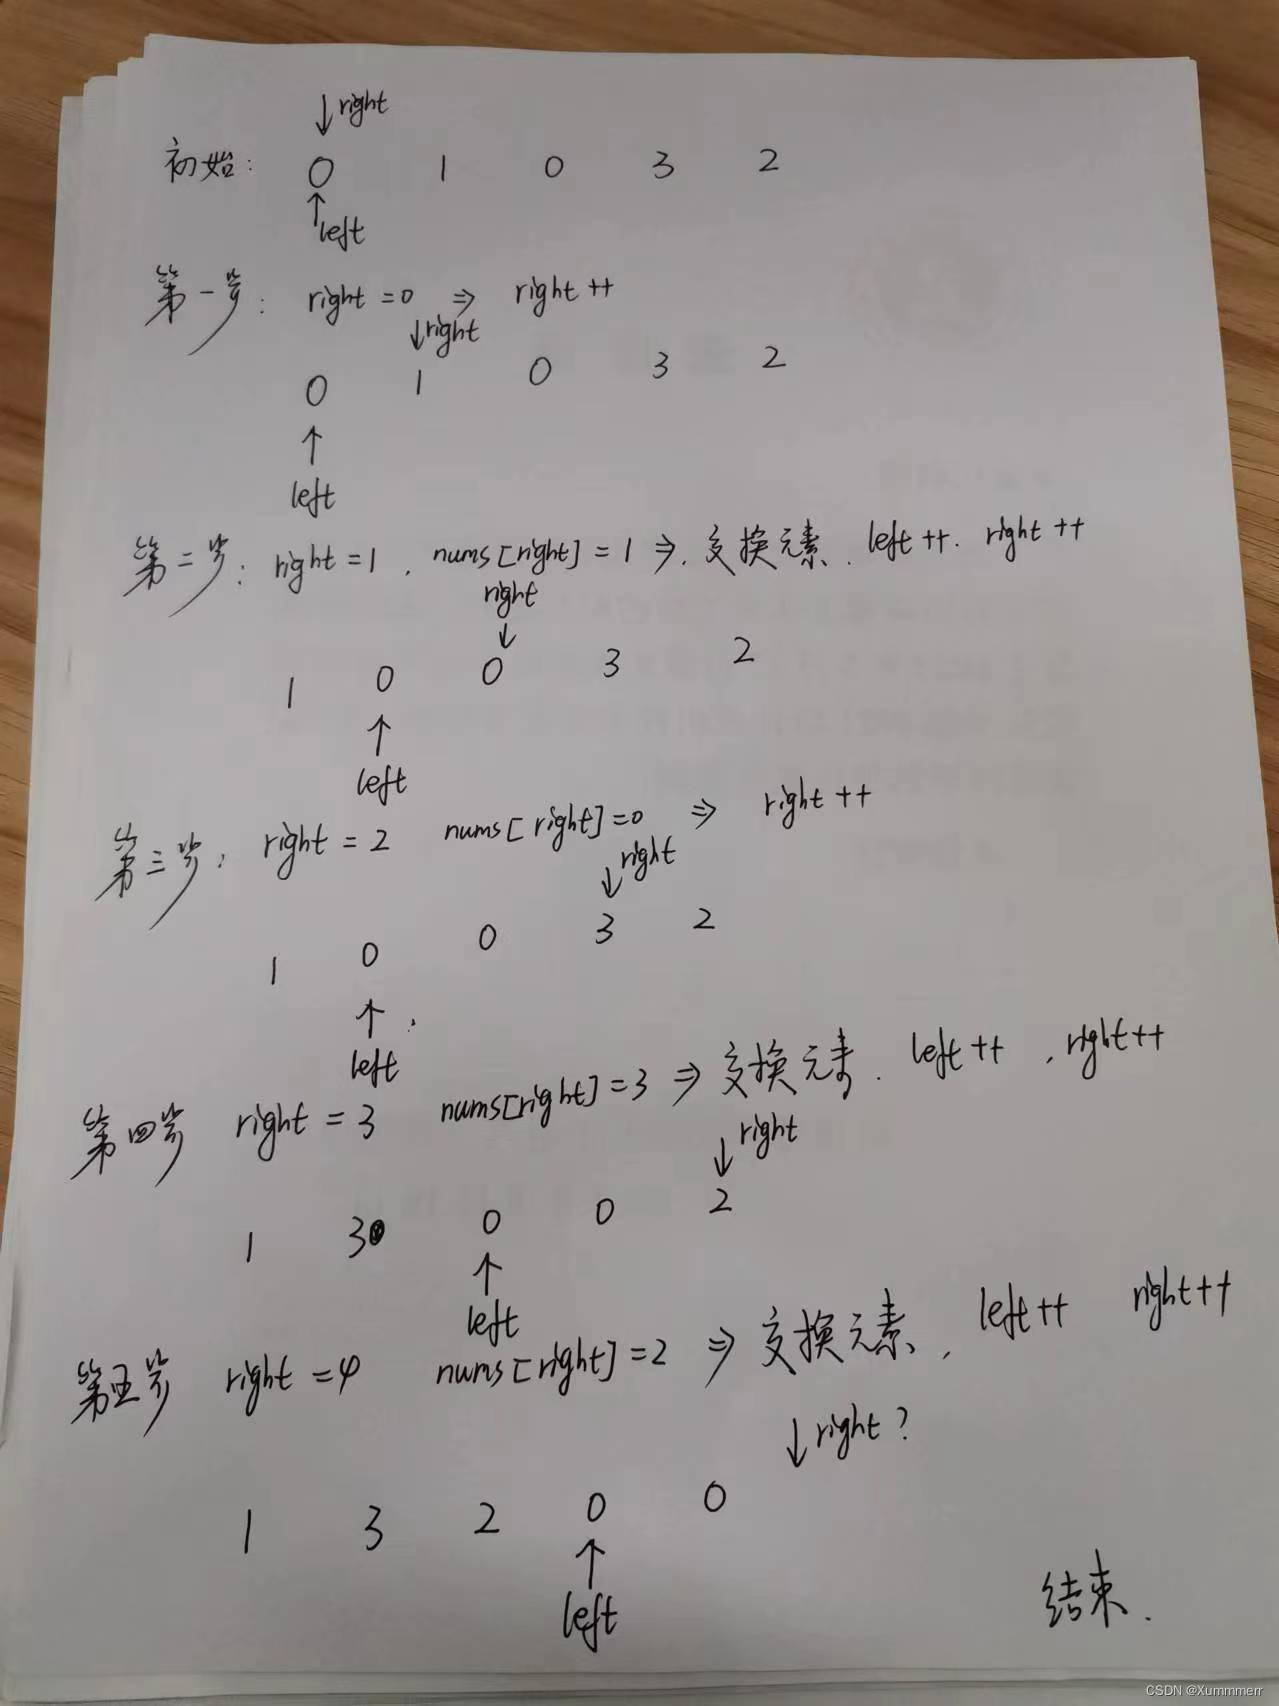 ↓right
初始: 0 1 0 3 2
↑left
第一步: right=0 ⇒ right++
↓right
0 1 0 3 2
↑
left
第二步: right=1, nums[right]=1 ⇒. 交换元素. left++. right++
right
↓
1 0 0 3 2
↑
left
第三步: right=2 nums[right]=0 ⇒ right++
↓right
1 0 0 3 2
↑
left
第四步 right=3 nums[right]=3 ⇒ 交换元素. left++, right++
↓right
1 3 0 0 2
↑
left
第五步 right=4 nums[right]=2 ⇒ 交换元素, left++ right++
↓right?
1 3 2 0 0
↑
left
结束.
CSDN @Xummmerr